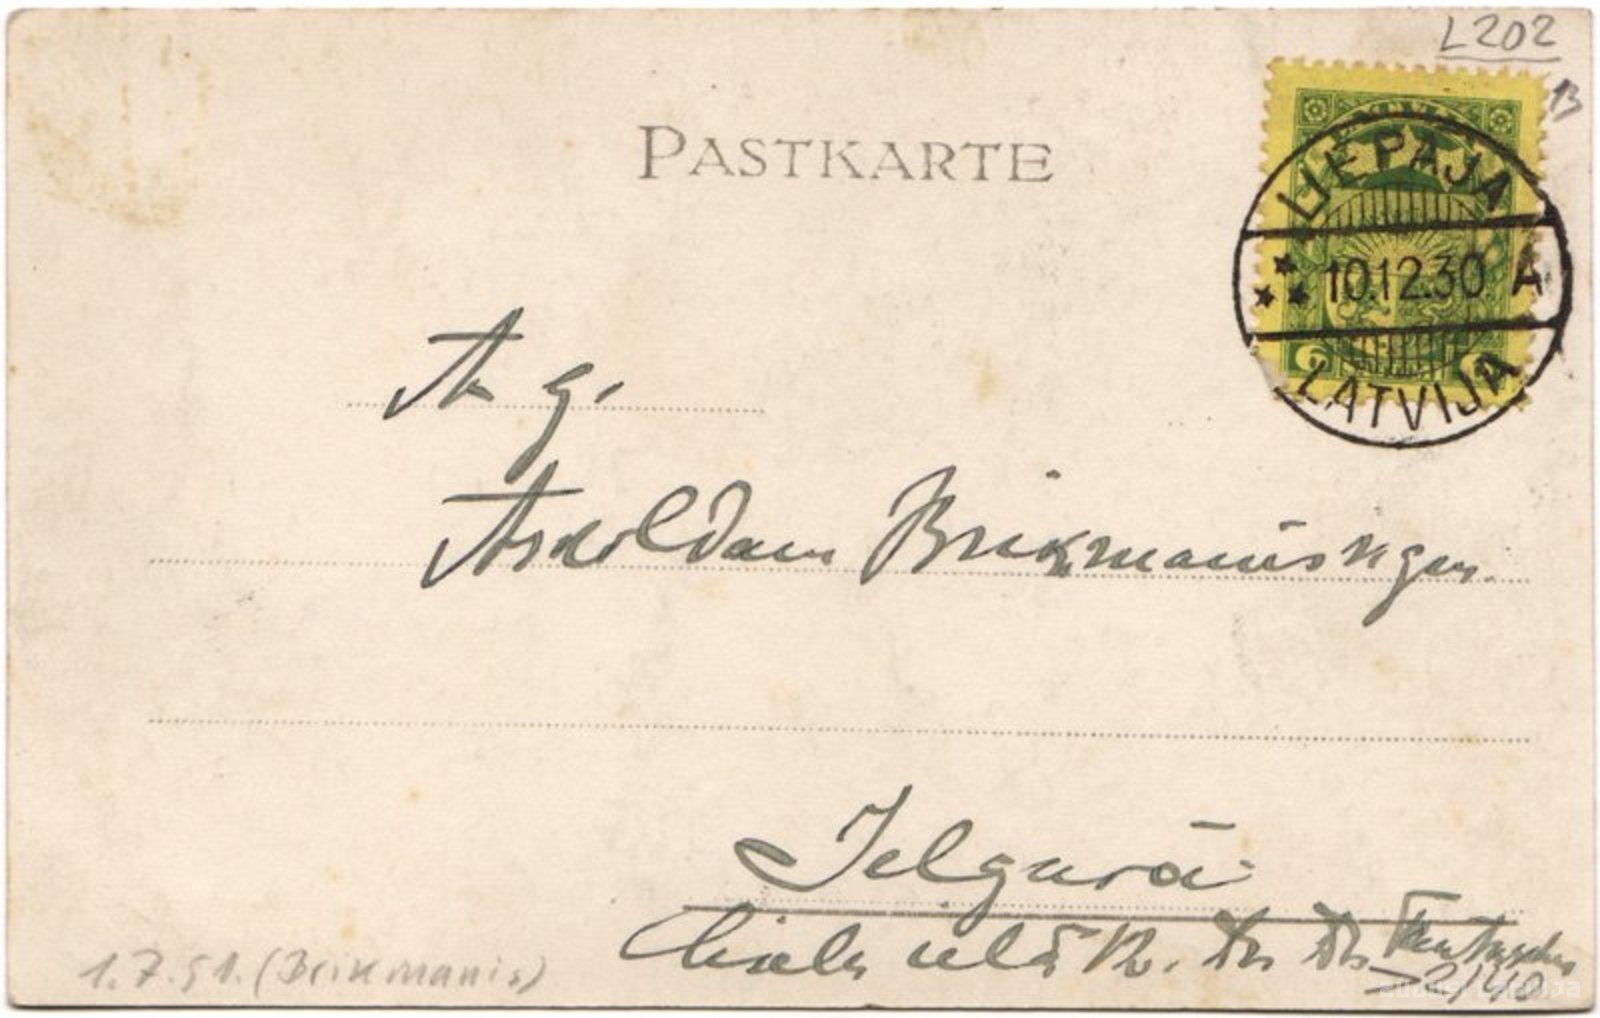 L202
B
PASTKARTE
LIEPAJA
10.12.30 A
LATVIJA
6 6
A. g.
Arnoldam Brikmanis kgm.
Jelgavā
Lielā ielā
1.7.51. (Brikmanis)